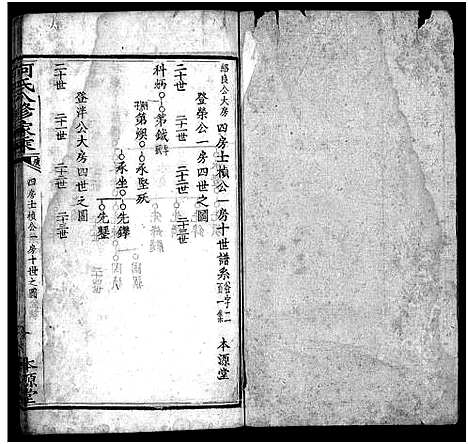 紹良公大房四房士楨公一房十世譜系 本源堂
登榮公一房四世之圖
二十世 二十一世 二十二世 二十三世
科炳 第鐵
第煥 永堅歿
永坐 先鐸
先鑾
登泮公大房四世之圖
二十世 二十一世 二十二世 二十三世
何氏八修家乘 四房士楨公一房十世之圖 本源堂